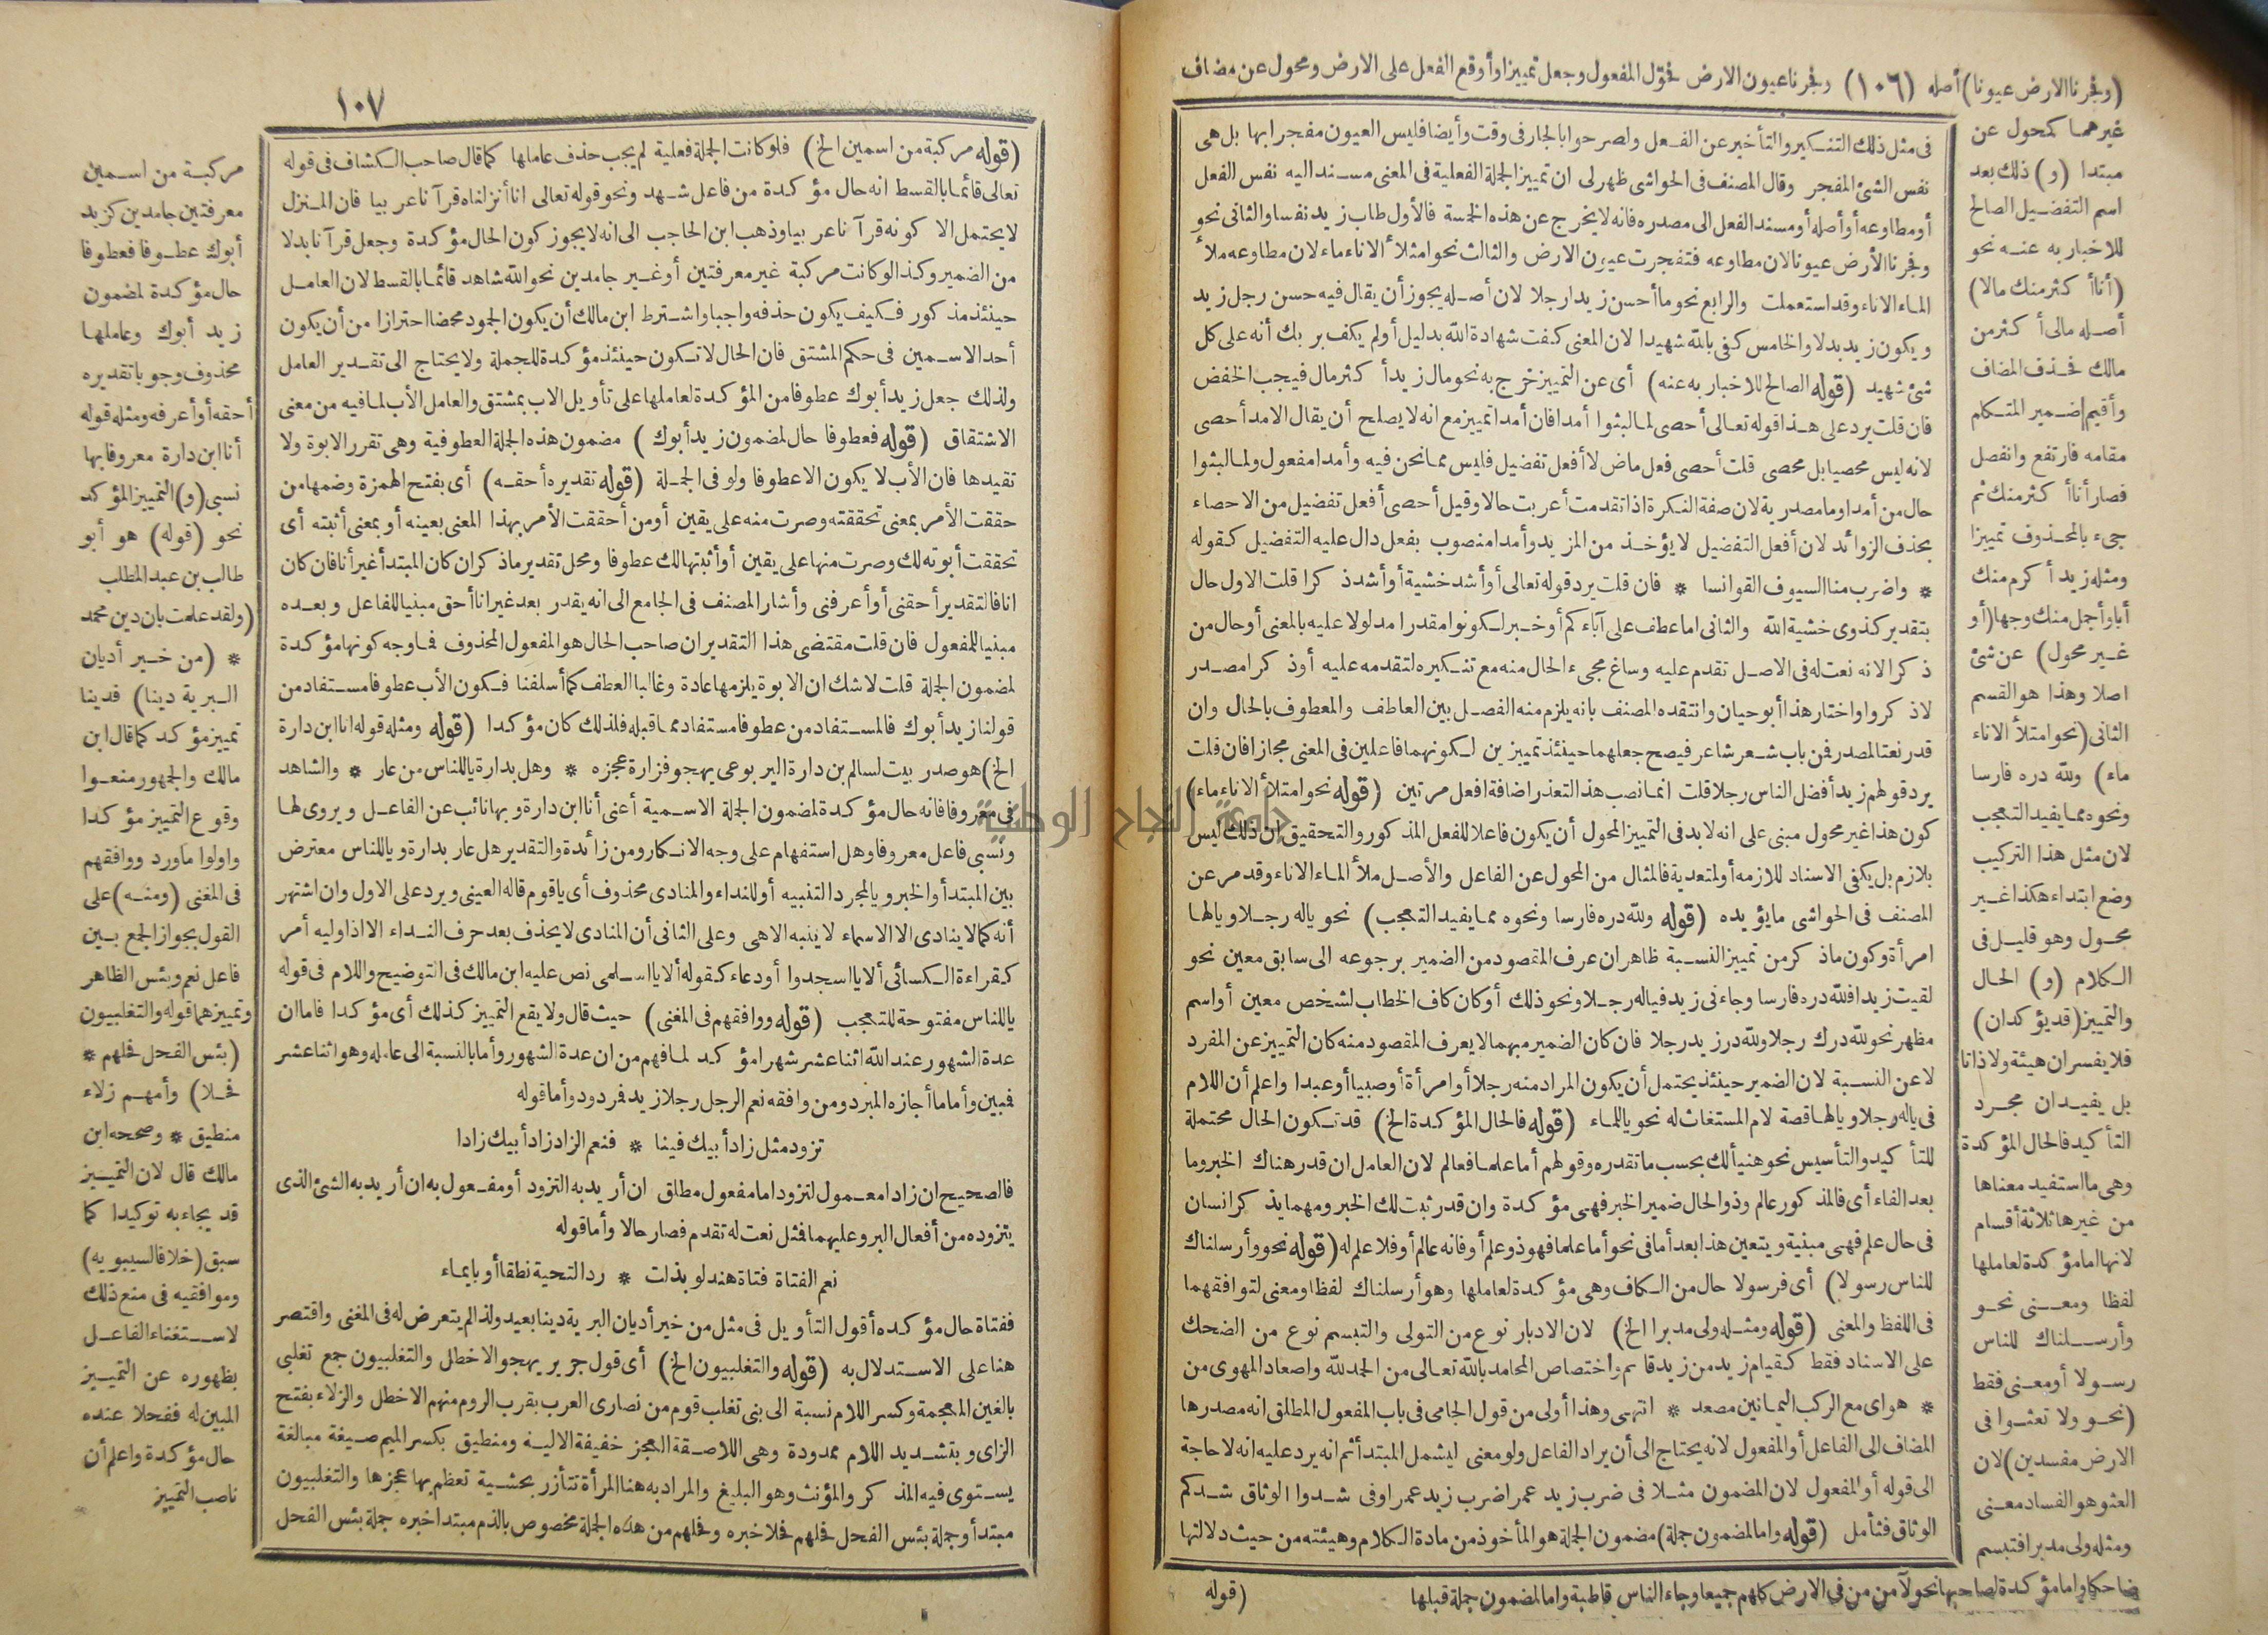 (وفجرنا الارض عيونا) أصله (١٠٦) وفجرنا عيون الارض فحوّل المفعول وجعل تمييزا وأوقع الفعل على الارض ومحول عن مضاف
غيرهما كمحول عن
مبتدا (و) ذلك بعد
اسم التفضيل الصالح
للاخبار به عنه نحو
(أنا أكثر منك مالا)
أصله مالى أكثر من
مالك فحذف المضاف
وأقيم ضمير المتكلم
مقامه فارتفع وانفصل
فصار أنا أكثر منك ثم
جىء بالمحذوف تمييزا
ومثله زيد أكرم منك
أبا وأجمل منك وجها (أو
غير محول) عن شئ
اصلا وهذا هو القسم
الثانى (نحو امتلأ الاناء
ماء) ولله دره فارسا
ونحوه مما يفيد التعجب
لان مثل هذا التركيب
وضع ابتداء هكذا غير
محول وهو قليل فى
الكلام (و) الحال
والتمييز (قد يؤكدان)
فلا يفسران هيئة ولا ذاتا
بل يفيدان مجرد
التأكيد فالحال المؤكدة
وهى ما استفيد معناها
من غيرها ثلاثة أقسام
لانها اما مؤكدة لعاملها
لفظا ومعنى نحو
وأرسلناك للناس
رسولا أو معنى فقط
(نحو ولا تعثوا فى
الارض مفسدين) لان
العثو هو الفساد معنى
ومثله ولى مدبرا فتبسم
ضاحكا واما مؤكدة لصاحبها نحو لآمن من فى الارض كلهم جميعا وجاء الناس قاطبة واما لمضمون جملة قبلها
فى مثل ذلك التنكير والتأخير عن الفعل ولصرحوا بالجار فى وقت وأيضا فليس العيون مفجرا بها بل هى
نفس الشئ المفجر وقال المصنف فى الحواشى ظهر لى ان تمييز الجملة الفعلية فى المعنى مسند اليه نفس الفعل
أو مطاوعه أو أصله أو مسند الفعل الى مصدره فانه لا يخرج عن هذه الخمسة فالأول طاب زيد نفسا والثانى نحو
وفجرنا الأرض عيونا لان مطاوعه فتفجرت عيون الارض والثالث نحو امتلأ الاناء ماء لان مطاوعه ملأ
الماء الاناء وقد استعملت والرابع نحو ما أحسن زيدا رجلا لان أصله يجوز أن يقال فيه حسن رجل زيد
ويكون زيد بدلا والخامس كفى بالله شهيدا لان المعنى كفت شهادة الله بدليل أولم يكف بربك أنه على كل
شئ شهيد (قوله الصالح للاخبار به عنه) أى عن التمييز خرج به نحو مال زيد أكثر مال فيجب الخفض
فان قلت يرد على هذا قوله تعالى أحصى لما لبثوا أمدا فان أمدا تمييز مع انه لا يصلح أن يقال الامد أحصى
لانه ليس محصيا بل محصى قلت أحصى فعل ماض لا أفعل تفضيل فليس مما نحن فيه وأمدا مفعول ولما لبثوا
حال من أمدا وما مصدرية لان صفة النكرة اذا تقدمت أعربت حالا وقيل أحصى أفعل تفضيل من الاحصاء
بحذف الزوائد لان أفعل التفضيل لا يؤخذ من المزيد وأمدا منصوب بفعل دال عليه التفضيل كقوله
* واضرب منا السيوف القوانسا * فان قلت يرد قوله تعالى أو أشد خشية أو أشد ذكرا قلت الاول حال
بتقدير كذوى خشية الله والثانى اما عطف على آباءكم أو خبر لكونوا مقدرا مدلولا عليه بالمعنى أو حال من
ذكرا لانه نعت له فى الاصل تقدم عليه وساغ مجىء الحال منه مع تنكيره لتقدمه عليه أو ذكرا مصدر
لاذكروا واختار هذا أبو حيان وانتقده المصنف بانه يلزم منه الفصل بين العاطف والمعطوف بالحال وان
قدر نعتا لمصدر فمن باب شعر شاعر فيصح جعلهما حينئذ تمييزين لكونهما فاعلين فى المعنى مجازا فان قلت
يرد قولهم زيد أفضل الناس رجلا قلت انما نصب هذا لتعذر اضافة افعل مرتين (قوله نحو امتلأ الاناء ماء)
كون هذا غير محول مبنى على انه لا بد فى التمييز المحول أن يكون فاعلا للفعل المذكور والتحقيق ان ذلك ليس
بلازم بل يكفى الاسناد للازمه أو لمتعدية فالمثال من المحول عن الفاعل والأصل ملأ الماء الاناء وقد مر عن
المصنف فى الحواشى ما يؤيده (قوله ولله دره فارسا ونحوه مما يفيد التعجب) نحو ياله رجلا ويالها
امرأة وكون ما ذكر من تمييز النسبة ظاهر ان عرف المقصود من الضمير برجوعه الى سابق معين نحو
لقيت زيدا فلله دره فارسا وجاءنى زيد فياله رجلا ونحو ذلك أو كان كاف الخطاب لشخص معين أو اسم
مظهر نحو لله درك رجلا ولله در زيد رجلا فان كان الضمير مبهما لا يعرف المقصود منه كان التمييز عن المفرد
لا عن النسبة لان الضمير حينئذ يحتمل أن يكون المراد منه رجلا أو امرأة أو صبيا أو عبدا واعلم أن اللام
فى ياله رجلا ويالها قصة لام المستغاث له نحو ياللماء (قوله فالحال المؤكدة الخ) قد تكون الحال محتملة
للتأكيد والتأسيس نحو هنيأ لك بحسب ما تقدره وقولهم أما علما فعالم لان العامل ان قدر هناك الخبر وما
بعد الفاء أى فالمذكور عالم وذو الحال ضمير الخبر فهى مؤكدة وان قدر ثبت لك الخبر ومهما يذكر انسان
فى حال علم فهى مبنية ويتعين هذا بعد أما فى نحو أما علما فهو ذو علم أو فانه عالم أو فلا علم له (قوله نحو وأرسلناك
للناس رسولا) أى فرسولا حال من الكاف وهى مؤكدة لعاملها وهو أرسلناك لفظا ومعنى لتوافقهما
فى اللفظ والمعنى (قوله ومثله ولى مدبرا الخ) لان الادبار نوع من التولى والتبسم نوع من الضحك
على الاسناد فقط كقيام زيد من زيد قائم واختصاص المحامد بالله تعالى من الحمد لله واصعاد المهوى من
* هواى مع الركب اليمانين مصعد * انتهى وهذا أولى من قول الجامى فى باب المفعول المطلق انه مصدرها
المضاف الى الفاعل أو المفعول لانه يحتاج الى أن يراد الفاعل ولو معنى ليشمل المبتدأ ثم انه يرد عليه انه لا حاجة
الى قوله أو المفعول لان المضمون مثلا فى ضرب زيد عمرا ضرب زيد عمرا وفى شدوا الوثاق شدكم
الوثاق فتأمل (قوله واما لمضمون جملة) مضمون الجملة هو المأخوذ من مادة الكلام وهيئته من حيث دلالتها
(قوله
١٠٧
(قوله مركبة من اسمين الخ) فلو كانت الجملة فعلية لم يجب حذف عاملها كما قال صاحب الكشاف فى قوله
تعالى قائما بالقسط انه حال مؤكدة من فاعل شهد ونحو قوله تعالى انا أنزلناه قرآنا عربيا فان المنزل
لا يحتمل الا كونه قرآنا عربيا وذهب ابن الحاجب الى انه لا يجوز كون الحال مؤكدة وجعل قرآنا بدلا
من الضمير وكذا لو كانت مركبة غير معرفتين أو غير جامدين نحو الله شاهد قائما بالقسط لان العامل
حينئذ مذكور فكيف يكون حذفه واجبا واشترط ابن مالك أن يكون الجمود محضا احترازا من أن يكون
أحد الاسمين فى حكم المشتق فان الحال لا تكون حينئذ مؤكدة للجملة ولا يحتاج الى تقدير العامل
ولذلك جعل زيد أبوك عطوفا من المؤكدة لعاملها على تأويل الاب بمشتق والعامل الأب لما فيه من معنى
الاشتقاق (قوله فعطوفا حال لمضمون زيد أبوك) مضمون هذه الجملة العطوفية وهى تقرر الابوة ولا
تقيدها فان الأب لا يكون الا عطوفا ولو فى الجملة (قوله تقديره أحقه) أى بفتح الهمزة وضمها من
حققت الأمر بمعنى تحققته وصرت منه على يقين أو من أحققت الأمر بهذا المعنى بعينه أو بمعنى أثبته أى
تحققت أبوته لك وصرت منها على يقين أو أثبتها لك عطوفا ومحل تقدير ما ذكر ان كان المبتدأ غير أنا فان كان
انا فالتقدير أحقنى أو أعرفنى وأشار المصنف فى الجامع الى انه يقدر بعد غير انا أحق مبنيا للفاعل وبعده
مبنيا للمفعول فان قلت مقتضى هذا التقدير ان صاحب الحال هو المفعول المحذوف فما وجه كونها مؤكدة
لمضمون الجملة قلت لا شك ان الابوة يلزمها عادة وغالبا العطف كما أسلفنا فكون الأب عطوفا مستفاد من
قولنا زيد أبوك فالمستفاد من عطوفا مستفاد مما قبله فلذلك كان مؤكدا (قوله ومثله قوله انا ابن دارة
الخ) هو صدر بيت لسالم بن دارة اليربوعى يهجو فزارة عجزه * وهل بدارة ياللناس من عار * والشاهد
فى معروفا فانه حال مؤكدة لمضمون الجملة الاسمية أعنى أنا ابن دارة وبها نائب عن الفاعل ويروى لها
ونسبى فاعل معروفا وهل استفهام على وجه الانكار ومن زائدة والتقدير هل عار بدارة وياللناس معترض
بين المبتدأ والخبر ويالمجرد التنبيه أو للنداء والمنادى محذوف أى ياقوم قاله العينى ويرد على الاول وان اشتهر
أنه كما لا ينادى الا الاسماء لا ينبه الا هى وعلى الثانى أن المنادى لا يحذف بعد حرف النداء الا اذا وليه أمر
كقراءة الكسائى ألا يا اسجدوا أو دعاء كقوله ألا يا اسلمى نص عليه ابن مالك فى التوضيح واللام فى قوله
ياللناس مفتوحة للتعجب (قوله ووافقهم فى المغنى) حيث قال ولا يقع التمييز كذلك أى مؤكدا فاما ان
عدة الشهور عند الله اثنا عشر شهرا مؤكد لما فهم من ان عدة الشهور وأما بالنسبة الى عامله وهو اثنا عشر
فمبين وأما ما أجازه المبرد ومن وافقه نعم الرجل رجلا زيد فمردود وأما قوله
تزود مثل زاد أبيك فينا * فنعم الزاد زاد أبيك زادا
فالصحيح ان زادا معمول لتزود اما مفعول مطلق ان أريد به التزود أو مفعول به ان أريد به الشئ الذى
يتزوده من أفعال البر وعليهما فمثل نعت له تقدم فصار حالا وأما قوله
نعم الفتاة فتاة هند لو بذلت * رد التحية نطقا أو بايماء
ففتاة حال مؤكدة أقول التأويل فى مثل من خير أديان البرية دينا بعيد ولذا لم يتعرض له فى المغنى واقتصر
هنا على الاستدلال به (قوله والتغلبيون الخ) أى قول جرير يهجو الاخطل والتغلبيون جمع تغلبى
بالغين المعجمة وكسر اللام نسبة الى بنى تغلب قوم من نصارى العرب بقرب الروم منهم الاخطل والزلاء بفتح
الزاى وبتشديد اللام ممدودة وهى اللاصقة العجز خفيفة الالية ومنطيق بكسر الميم صيغة مبالغة
يستوى فيه المذكر والمؤنث وهو البليغ والمراد به هنا المرأة تتأزر بحشية تعظم بها عجزها والتغلبيون
مبتدأ وجملة بئس الفحل فحلهم فحلا خبره وفحلهم من هذه الجملة مخصوص بالذم مبتدا خبره جملة بئس الفحل
مركبة من اسمين
معرفتين جامدين كزيد
أبوك عطوفا فعطوفا
حال مؤكدة لمضمون
زيد أبوك وعاملها
محذوف وجوبا تقديره
أحقه أو أعرفه ومثله قوله
أنا ابن دارة معروفا بها
نسبى (و) التمييز المؤكد
نحو (قوله) هو أبو
طالب بن عبد المطلب
(ولقد علمت بان دين محمد
* (من خير أديان
البرية دينا) فدينا
تمييز مؤكد كما قال ابن
مالك والجمهور منعوا
وقوع التمييز مؤكدا
واولوا ما ورد ووافقهم
فى المغنى (ومنه) على
القول بجواز الجمع بين
فاعل نعم وبئس الظاهر
وتمييزهما قوله والتغلبيون
(بئس الفحل فحلهم *
فحلا) وأمهم زلاء
منطيق * وصححه ابن
مالك قال لان التمييز
قد يجاء به توكيدا كما
سبق (خلافا لسيبويه)
وموافقيه فى منع ذلك
لاستغناء الفاعل
بظهوره عن التمييز
المبين له ففحلا عنده
حال مؤكدة واعلم أن
ناصب التمييز
جامعة النجاح الوطنية